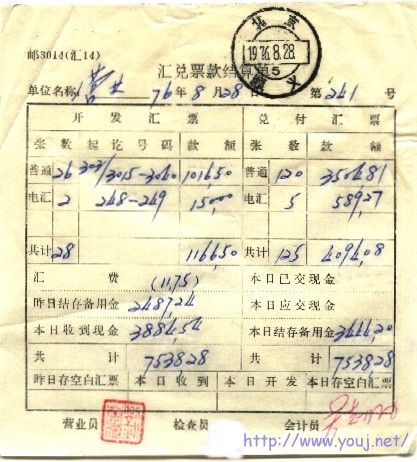 邮3014(汇14)
北京
1976.8.28.
5
汇兑票款结算单
单位名称 营业 76年8月28 第241号
开发汇票 兑付汇票
张数 起讫号码 款额 张数 款额
普通 26 3015-3040 1016.50 普通 120 3504.81
电汇 2 248-249 150.00 电汇 5 589.27
共计 28 1166.50 共计 125 4094.08
汇费 (11.75) 本日已交现金
昨日结存备用金 2487.24 本日应交现金
本日收到现金 3884.54 本日结存备用金 3444.20
共计 7538.28 共计 7538.28
昨日存空白汇票 本日收到 本日开发 本日存空白汇票
营业员 检查员 会计员
http://www.youj.net/